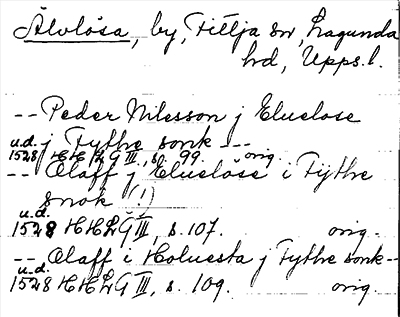 Älvlösa, by, Fittja sn, Lagunda
hd, Upps.l.
-- Peder Nilsson j Elueløse
j Fythie sonk --
u.d.
1528 HH LG III, s. 99. orig.
-- Olaff j Elueløse i Fÿthie
snok (!)
u.d.
1528 HHLG III, s. 107. orig.
-- Olaff i Holuesta j Fythie sonk --
u.d.
1528 HHLG III, s. 109. orig.